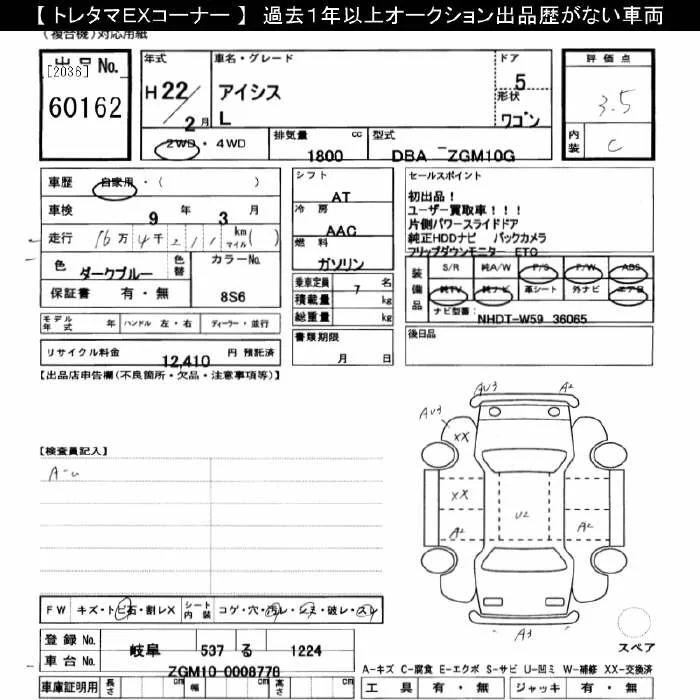 【 トレタマEXコーナー 】 過去1年以上オークション出品歴がない車両
(複合機)対応用紙
出品No.
[2036]
60162
年式
H22/2月
車名・グレード
アイシス
L
ドア
5
形状
ワゴン
評価点
3.5
内装
C
2WD・4WD
排気量 cc
1800
型式
DBA ZGM10G
車歴 自家用・( )
車検 9年 3月
走行 16万4千211 km マイル( )
色
ダークブルー
色替
カラーNo.
8S6
保証書 有・無
シフト
AT
冷房
AAC
燃料
ガソリン
乗車定員 7 名
積載量 kg
総重量 kg
セールスポイント
初出品!
ユーザー買取車!!!
片側パワースライドドア
純正HDDナビ バックカメラ
フリップダウンモニター ETC
装備品
S/R 純A/W P/S P/W ABS
純TV 純ナビ 革シート 外ナビ エアB
ナビ型番:
NHDT-W59 36065
モデル年式 年 ハンドル 左・右 ディーラー・並行
リサイクル料金 12,410 円 預託済
書類期限
月 日
後日品
【出品店申告欄(不良箇所・欠品・注意事項等)】
AU3
A2
AU3
XX
【検査員記入】
A-u
XX
A2
U2
A2
A3
スペア
FW キズ・トビ石・割レX シート内装 コゲ・穴・汚レ・シミ・破レ・スレ
登録No. 岐阜 537 る 1224
車台No. ZGM10-0008778
車庫証明用 長さ cm 幅 cm 高さ cm
A-キズ C-腐食 E-エクボ S-サビ U-凹ミ W-補修 XX-交換済
工具 有・無 ジャッキ 有・無